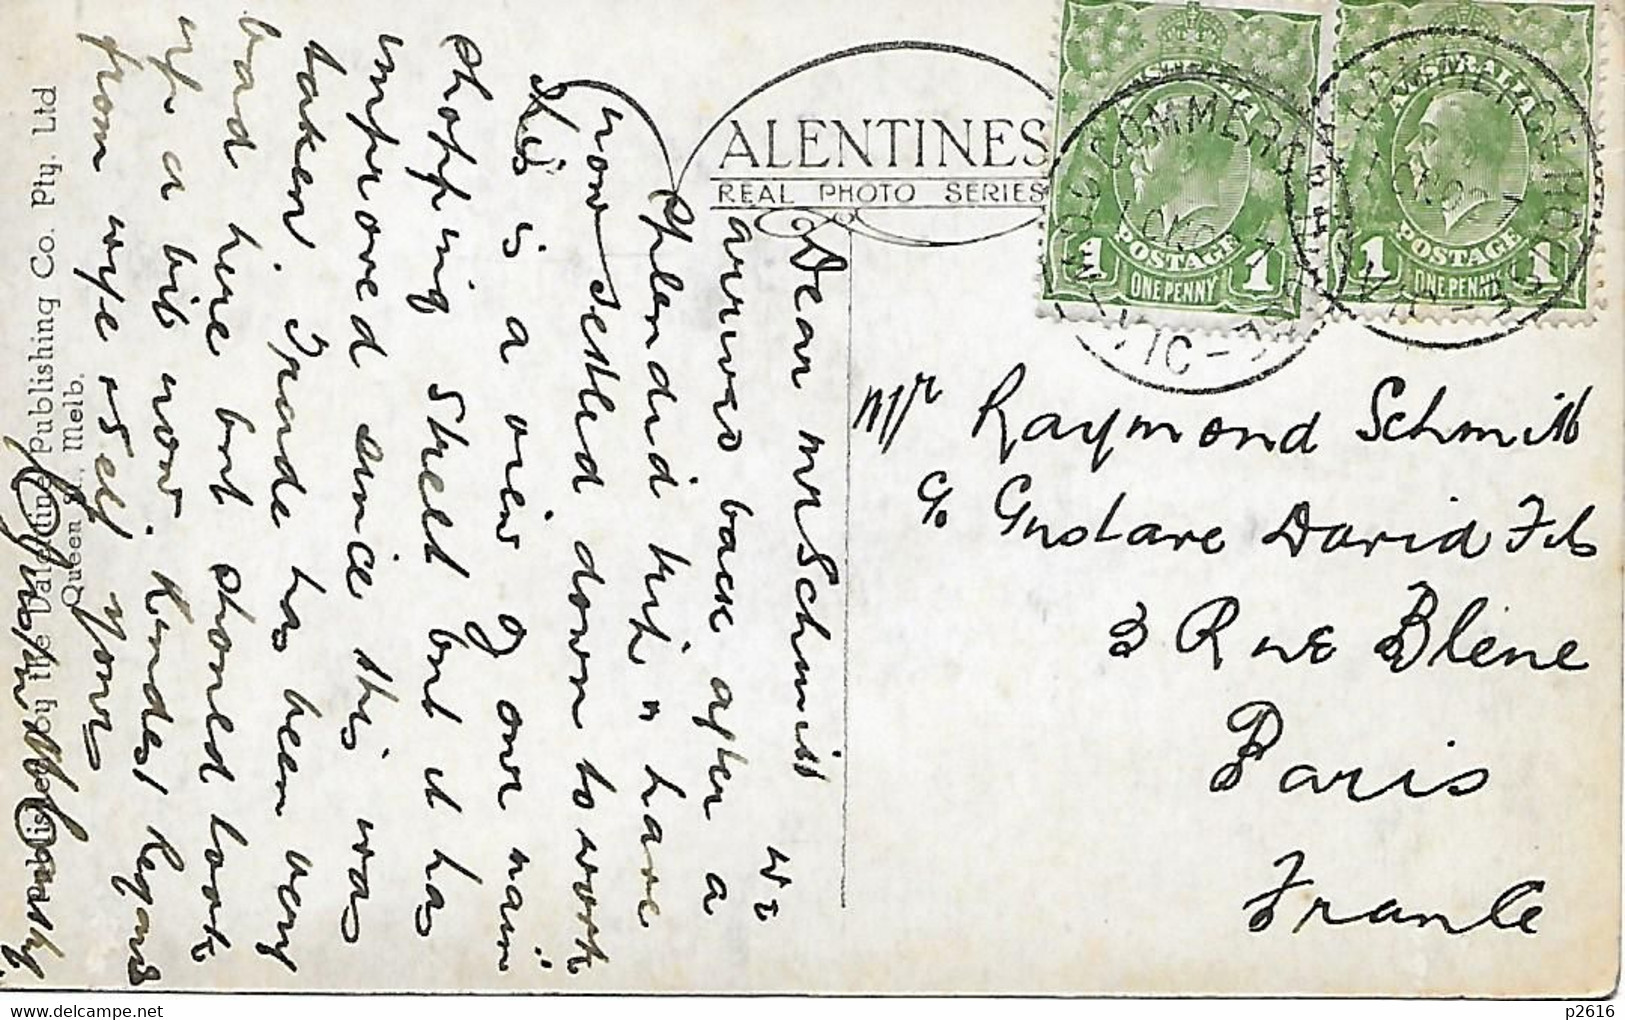 ALENTINES
REAL PHOTO SERIES
AUSTRALIA
POSTAGE
1 ONE PENNY 1
AUSTRALIA
POSTAGE
1 ONE PENNY 1
Dear Mr Schmitt
We
arrived back after a
splendid trip & have
now settled down to work
this is a view of our main
shopping Street but it has
improved since this was
taken. Trade has been very
bad here but should look
up a bit now. Kindest Regards
from wife & self yours
Mr Raymond Schmitt
c/o Gustave David Fils
3 Rue Blene
Paris
France
Published by the Valentine Publishing Co. Pty. Ltd
Queen St., Melb.
p2616